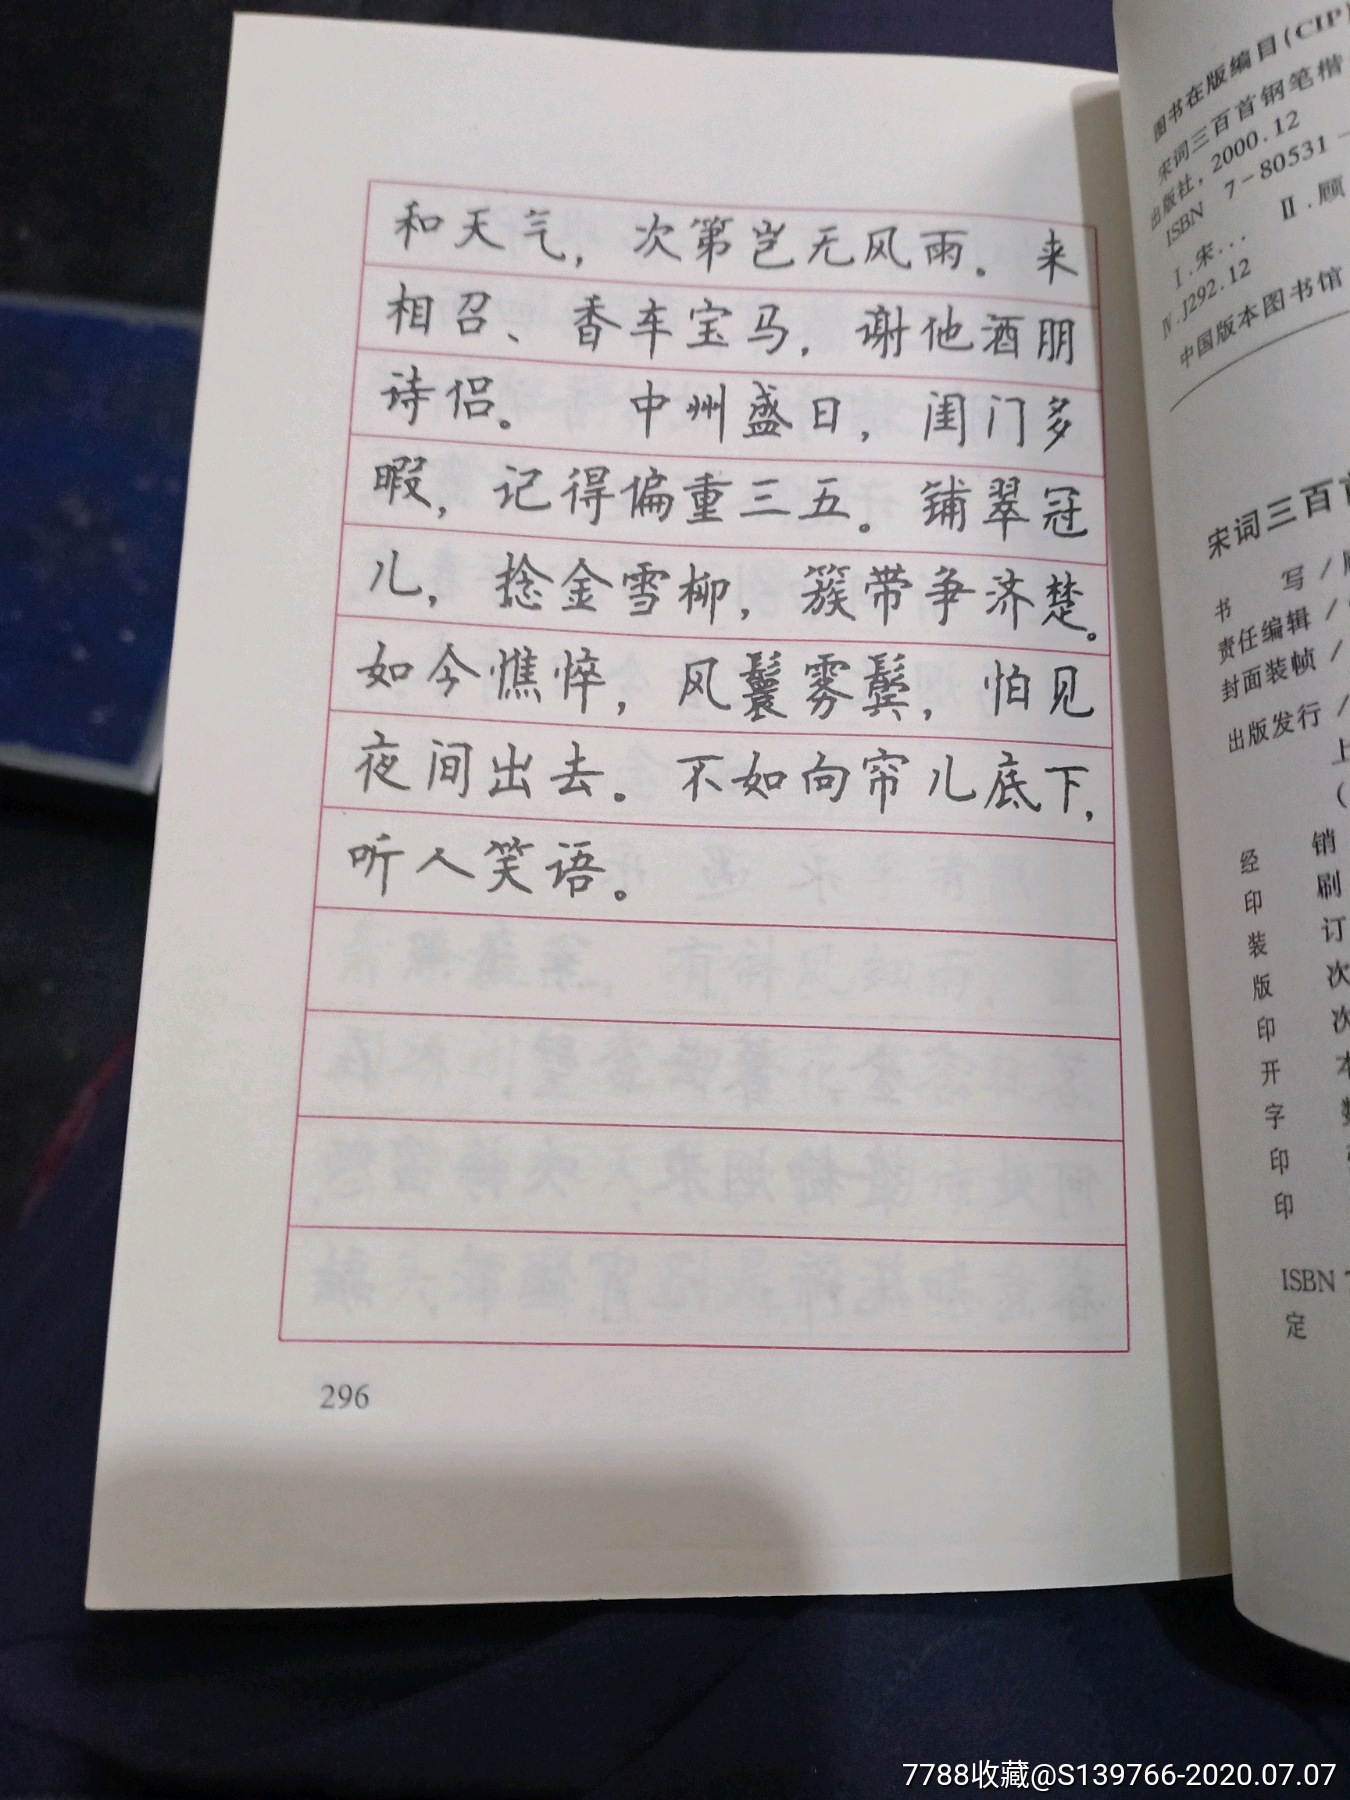 和天气，次第岂无风雨。来
相召、香车宝马，谢他酒朋
诗侣。　中州盛日，闺门多
暇，记得偏重三五。铺翠冠
儿，捻金雪柳，簇带争济楚。
如今憔悴，风鬟雾鬓，怕见
夜间出去。不如向帘儿底下，
听人笑语。
296
图书在版编目(CIP)
宋词三百首钢笔楷
出版社，2000.12
ISBN 7-80531-
Ⅰ.宋… Ⅱ.顾
Ⅳ.J292.12
中国版本图书馆
宋词三百首
书 写/
责任编辑/
封面装帧/
出版发行/
上
(
经 销
印 刷
装 订
版 次
印 次
开 本
字 数
印
印
ISBN 7
定
7788收藏@S139766-2020.07.07